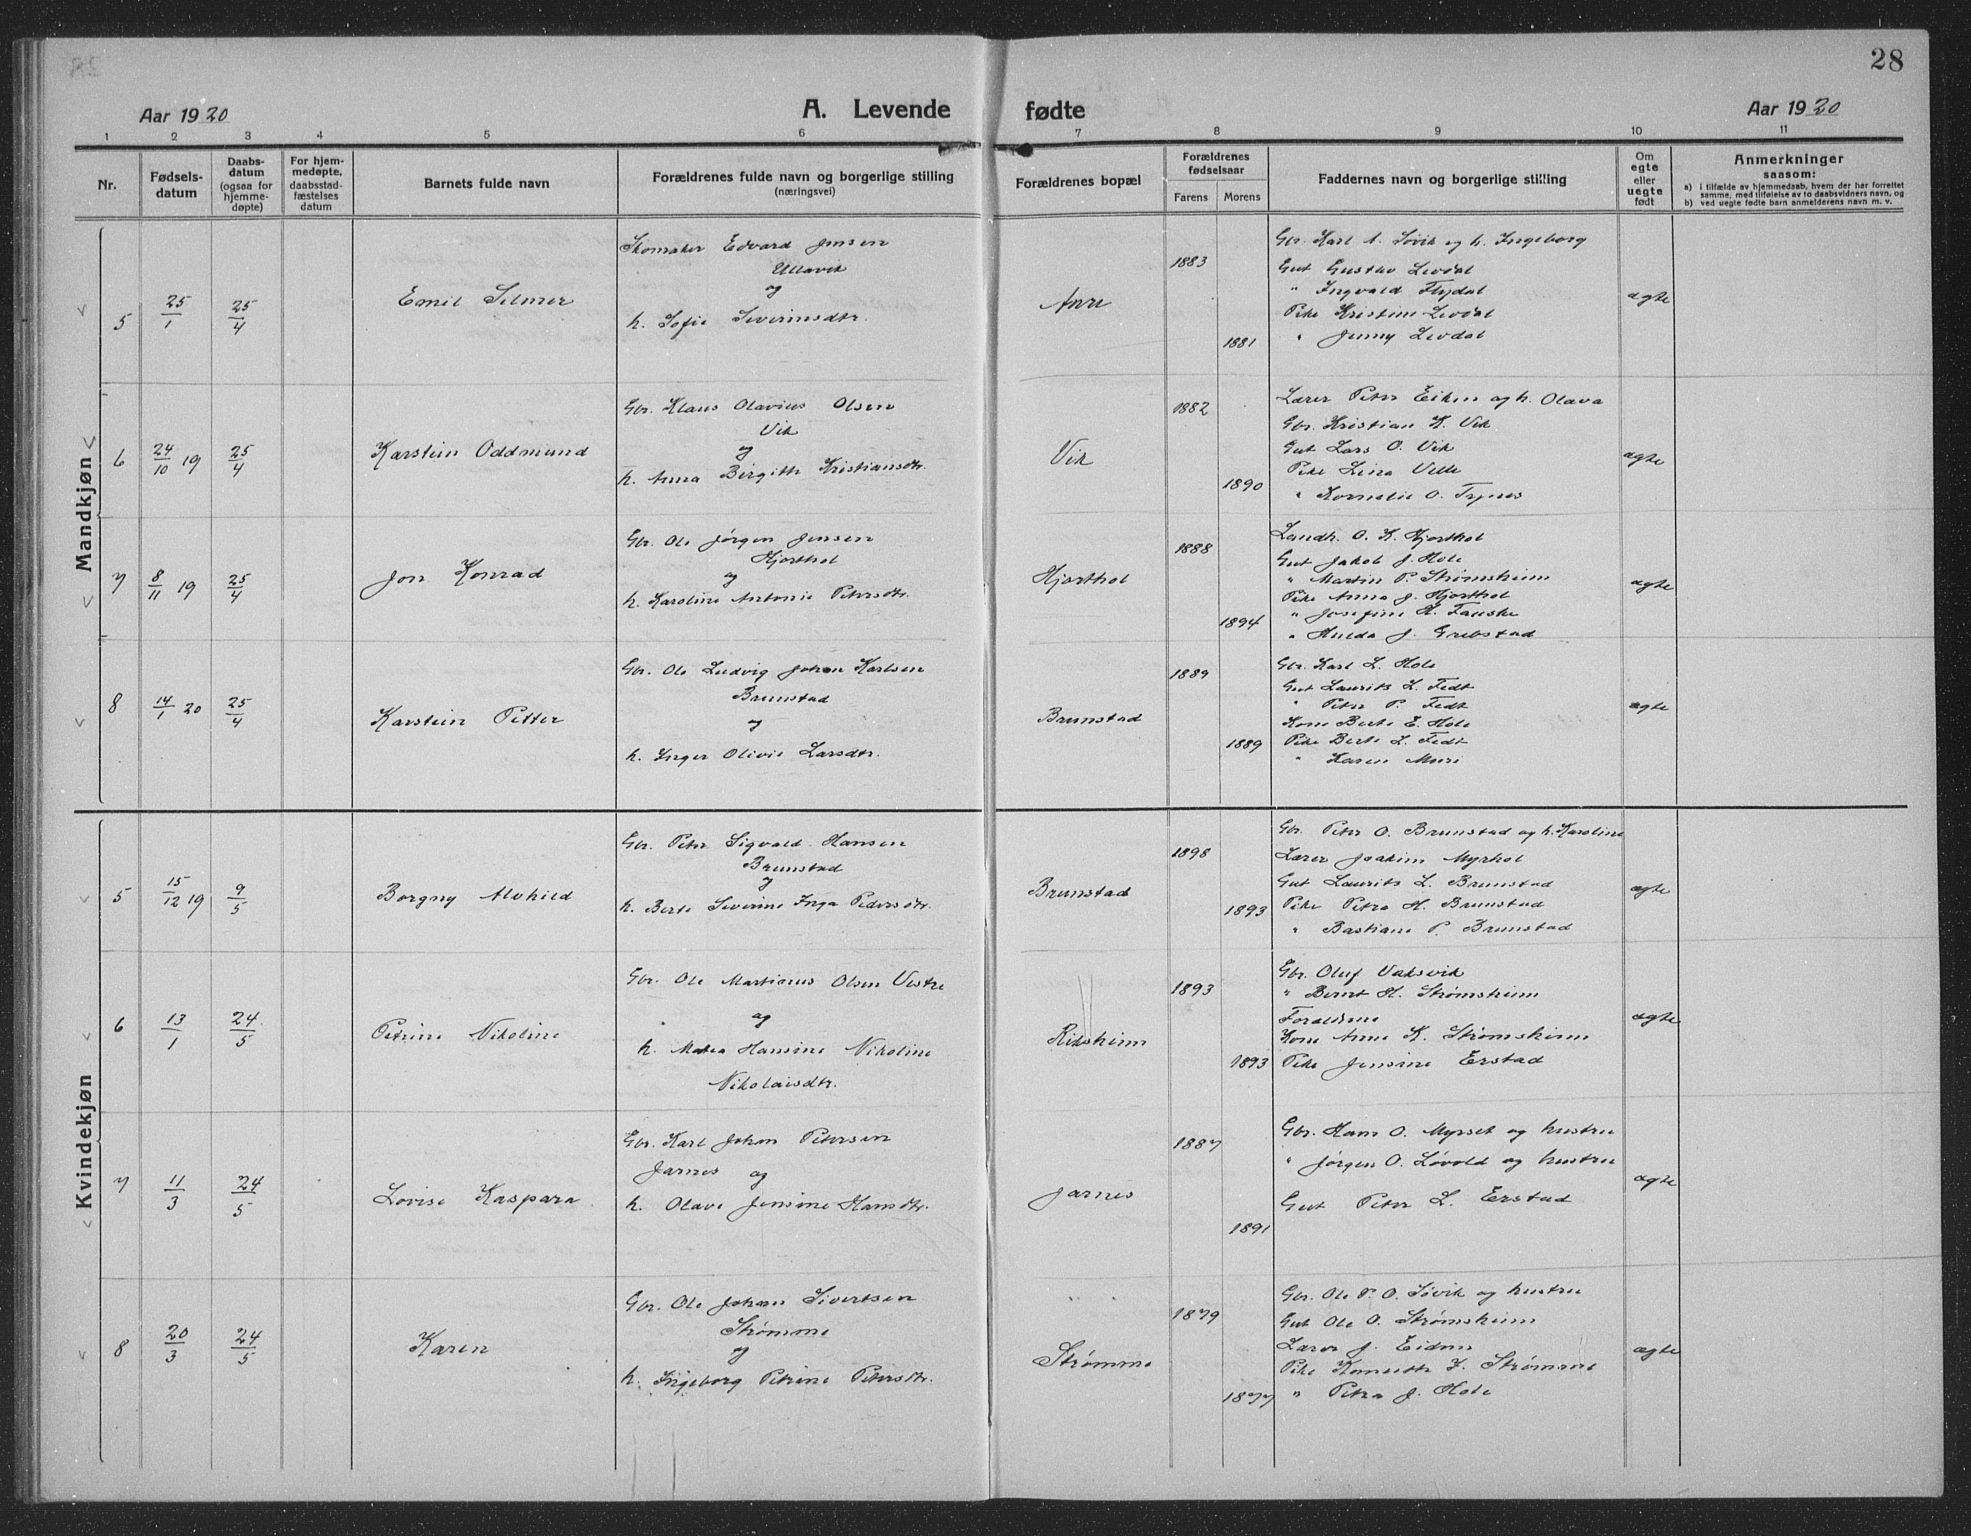 28
Aar 1920
A. Levende fødte
Aar 1920
1 2 3 4 5 6 7 8 9 10 11
Nr.
Fødsels-
datum
Daabs-
datum
(ogsaa for
hjemme-
døpte)
For hjem-
medøpte,
daabsstad-
fæstelses
datum
Barnets fulde navn
Forældrenes fulde navn og borgerlige stilling
(næringsvei)
Forældrenes bopæl
Forældrenes
fødselsaar
Farens Morens
Faddernes navn og borgerlige stilling
Om
egte
eller
uegte
født
Anmerkninger
saasom:
a) i tilfælde av hjemmedaab, hvem der har forrettet
samme, med tilføielse av to daabsvidners navn, og
b) ved uegte fødte barn anmelderens navn m. v.
Mandkjøn
5
25/1
25/4
Emil Selmer
Skomaker Edvard Jensen
og
h. Sofie Severinsdtr.
1883
1881
Gbr. Karl A. Søvik og h. Ingeborg
Gut Gustav Levdal
" Ingvald Flydal
Pike Kristine Levdal
" Jenny Levdal
egte
6
24/10 19
25/4
Karstein Oddmund
Gbr. Klaus Olavius Olsen
Vik
og
h. Anna Birgith Kristiansdtr.
Vik
1882
1890
Lærer Peter Eiken og h. Olava
Gbr. Kristian K. Vik
Gut Lars O. Vik
Pike Lina Velle
" Kornelie O. Tynes
egte
7
8/11 19
25/4
Jon Konrad
Gbr. Ole Jørgen Jensen
Hjorthol
og
h. Karoline Antonie Petersdtr.
Hjorthol
1888
1894
Landh. O. K. Hjorthol
Gut Jakob J. Hole
" Martin P. Strømsheim
Pike Anna J. Hjorthol
" Josefine H. Fauske
" Hulda J. Grebstad
egte
8
14/1 20
25/4
Karstein Petter
Gbr. Ole Ludvig Johan Karlsen
Brunstad
og
h. Inger Olivie Larsdtr.
Brunstad
1889
1889
Gbr. Karl L. Hole
Gut Laurits L. Fedt
" Peter P. Fedt
Kone Berte E. Hole
Pike Berte L. Fedt
" Karen Muri
egte
Kvindekjøn
5
15/12 19
9/5
Borgny Alvhild
Gbr. Peter Sigvald Hansen
Brunstad
og
h. Berte Severine Inga Pedersdtr.
Brunstad
1898
1893
Gbr. Peter O. Brunstad og h. Karoline
Lærer Joakim Myrhol
Gut Laurits L. Brunstad
Pike Petra H. Brunstad
" Bastiane P. Brunstad
egte
6
13/1
24/5
Petrine Nikoline
Gbr. Ole Martinus Olsen Vestre
og
h. Matea Hansine Nikoline
Nikolaisdtr.
Riksheim
1893
1893
Gbr. Oluf Vaksvik
" Bernt H. Strømsheim
Forældrene
Kone Anne K. Strømsheim
Pike Jensine Erstad
egte
7
11/3
24/5
Lovise Kaspara
Gbr. Karl Johan Petersen
Jarnes og
h. Olave Jensine Hansdtr.
Jarnes
1887
1891
Gbr. Hans O. Myrset og hustru
" Jørgen O. Løvold og hustru
Gut Peter L. Erstad
egte
8
20/3
24/5
Karen
Gbr. Ole Johan Sivertsen
Strømme
og
h. Ingeborg Petrine Petersdtr.
Strømme
1879
1877
Gbr. Ole P. O. Søvik og hustru
Gut Ole O. Strømsheim
Lærer J. Eidem
Pike
" Petra J. Hole
egte